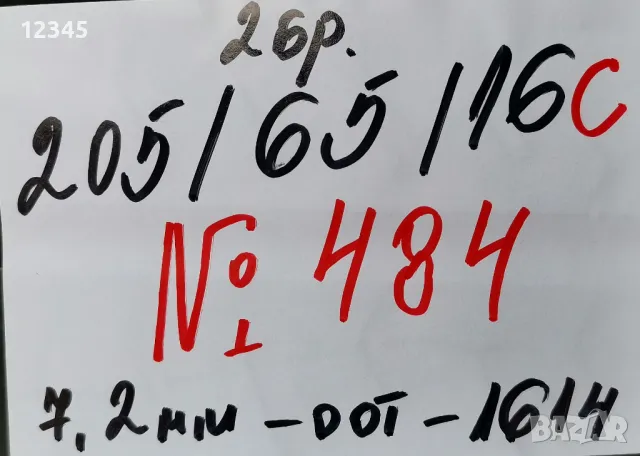 12345
2бр.
205/65/16C
№ 484
7,2мм - DOT - 1614
BAZAR